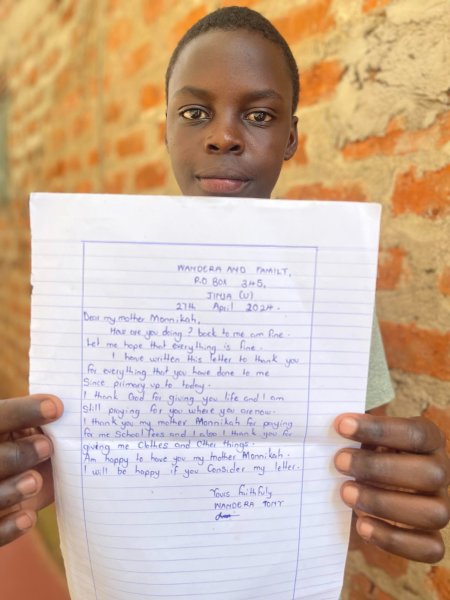 WANDERA AND FAMILY,
P.O BOX 345,
JINJA (U)
27th April 2024.
Dear my mother Monnikah,
How are you doing? back to me am fine.
Let me hope that everything is fine.
I have written this letter to thank you
for everything that you have done to me
Since primary up to today.
I thank God for giving you life and I am
still praying for you where you are now.
I thank you my mother Monnikah for paying
for me School fees and I also I thank you for
giving me Clothes and Other things.
Am happy to have you my mother Monnikah.
I will be happy if you Consider my letter.
Yours faithfully
WANDERA TONY